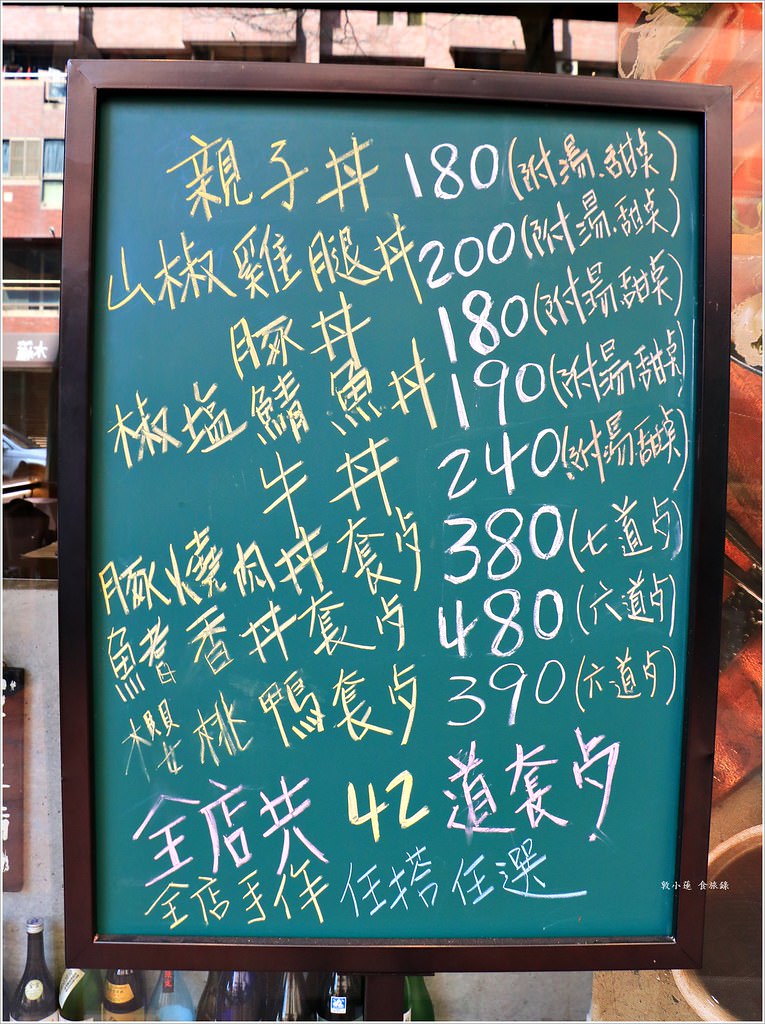 親子丼 180(附湯.甜点)
山椒雞腿丼 200(附湯.甜点)
豚丼 180(附湯.甜点)
椒塩鯖魚丼 190(附湯甜点)
牛丼 240(附湯甜点)
豚燒肉丼套歺 380(七道歺)
魚香丼套歺 480(六道歺)
櫻桃鴨套歺 390(六道歺)
全店共 42 道套歺
全店手作 任搭任選
敦小蓮 食旅錄